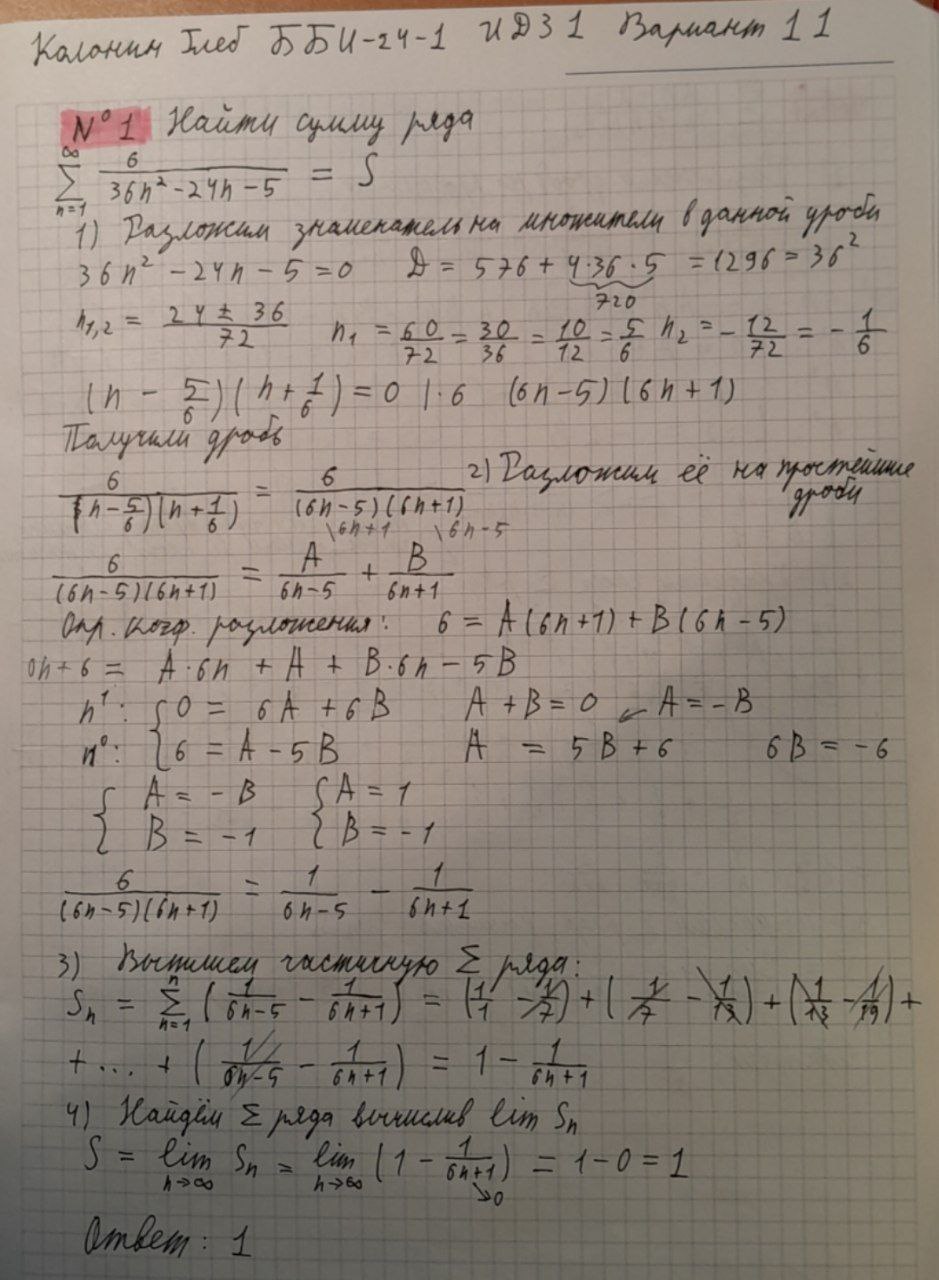 Калонин Глеб ББИ-24-1 ИДЗ 1 Вариант 11
№1 Найти сумму ряда
∞ Σ n=1 6/(36n² - 24n - 5) = S
1) Разложим знаменатель на множители в данной дроби
36n² - 24n - 5 = 0 D = 576 + 4·36·5 = 1296 = 36²
720
n₁,₂ = (24 ± 36)/72 n₁ = 60/72 = 30/36 = 10/12 = 5/6 n₂ = -12/72 = -1/6
(n - 5/6)(n + 1/6) = 0 |·6 (6n-5)(6n+1)
Получили дробь
6/((n - 5/6)(n + 1/6)) = 6/((6n-5)(6n+1)) 2) Разложим её на простейшие дроби
\6n+1 \6n-5
6/((6n-5)(6n+1)) = A/(6n-5) + B/(6n+1)
Опр. коэф. разложения: 6 = A(6n+1) + B(6n-5)
0n + 6 = A·6n + A + B·6n - 5B
n¹: { 0 = 6A + 6B A + B = 0 ↙ A = -B
n⁰: { 6 = A - 5B A = 5B + 6 6B = -6
{ A = -B { A = 1
{ B = -1 { B = -1
6/((6n-5)(6n+1)) = 1/(6n-5) - 1/(6n+1)
3) Выпишем частичную Σ ряда:
Sn = n Σ n=1 (1/(6n-5) - 1/(6n+1)) = (1/1 - 1/7) + (1/7 - 1/13) + (1/13 - 1/19) +
+ ... + (1/(6n-5) - 1/(6n+1)) = 1 - 1/(6n+1)
4) Найдём Σ ряда вычислив lim Sn
S = lim n→∞ Sn = lim n→∞ (1 - 1/(6n+1)) = 1 - 0 = 1
↘0
Ответ: 1